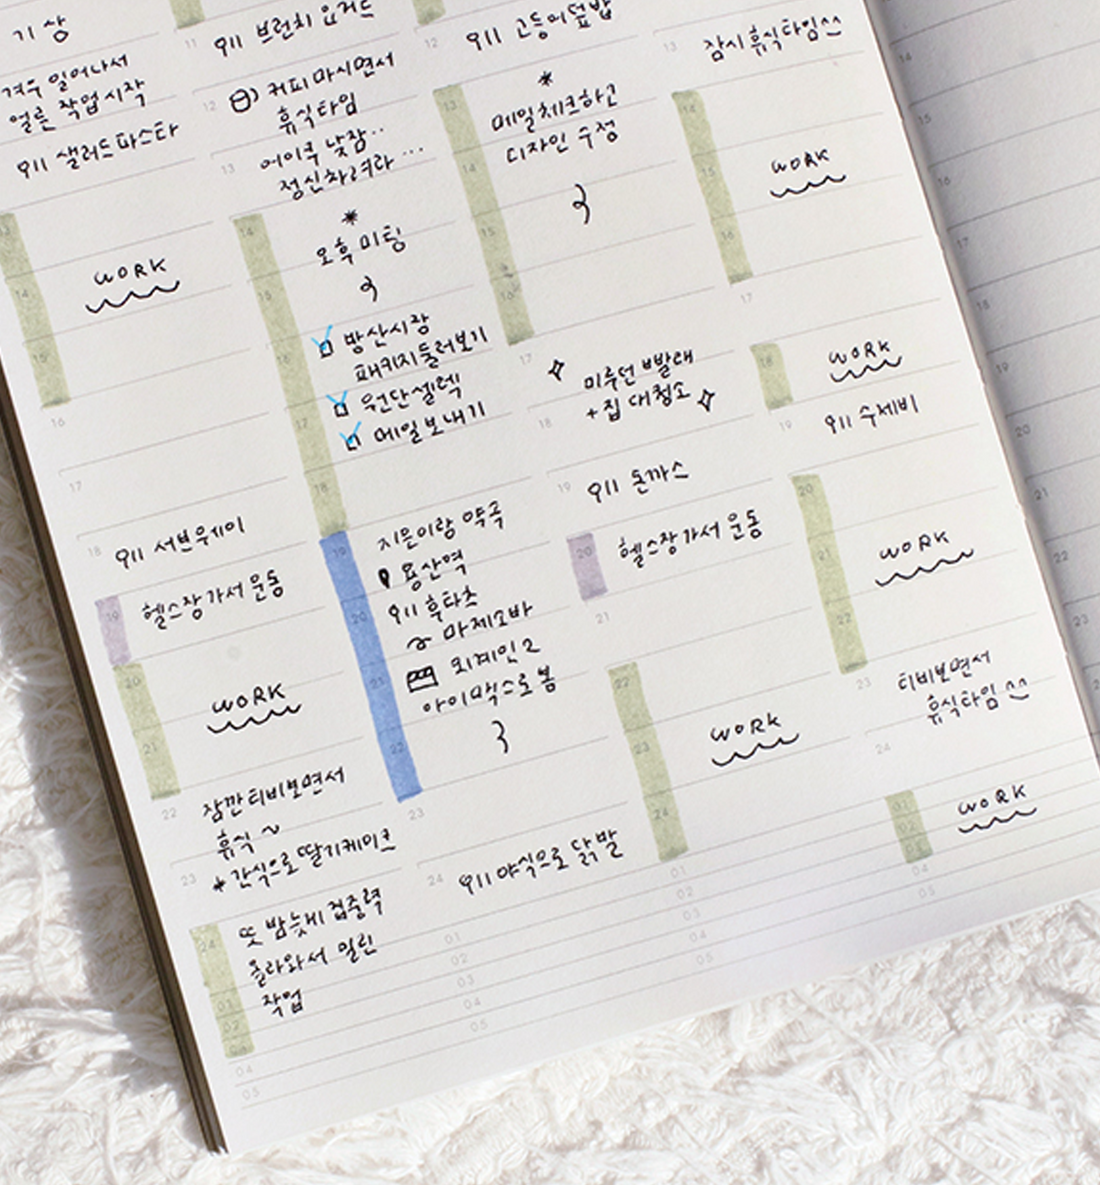 기상
겨우 일어나서
얼른 작업 시작
911 샐러드파스타
13
WORK
14
15
16
17
18
911 서브웨이
19
헬스장 가서 운동
20
WORK
21
22
잠깐 티비보면서
휴식 ~
+ 간식으로 딸기케이크
23
24
또 밤늦게 집중력
올라와서 밀린
작업
01
02
03
04
05
11
911 브런치 요거트
12
커피 마시면서
휴식타임
13
어이쿠 낮잠..
정신차려라 ...
14
오후 미팅
15
16
방산시장
패키지 둘러보기
17
원단셀렉
메일 보내기
18
19
지은이랑 약속
용산역
20
911 후타츠
마제소바
21
외계인 2
아이맥스로 봄
22
23
24
911 야식으로 닭발
01
02
03
04
05
12
911 고등어덮밥
13
메일체크하고
디자인 수정
14
15
16
17
미루던 빨래
+ 집 대청소
18
19
911 돈까스
20
헬스장 가서 운동
21
22
23
WORK
24
01
02
03
04
05
13
잠시 휴식타임^^
14
15
WORK
16
17
18
WORK
19
911 수제비
20
21
WORK
22
23
티비보면서
휴식타임 ^^
24
01
02
03
WORK
04
05
14
15
16
17
18
19
20
21
22
23